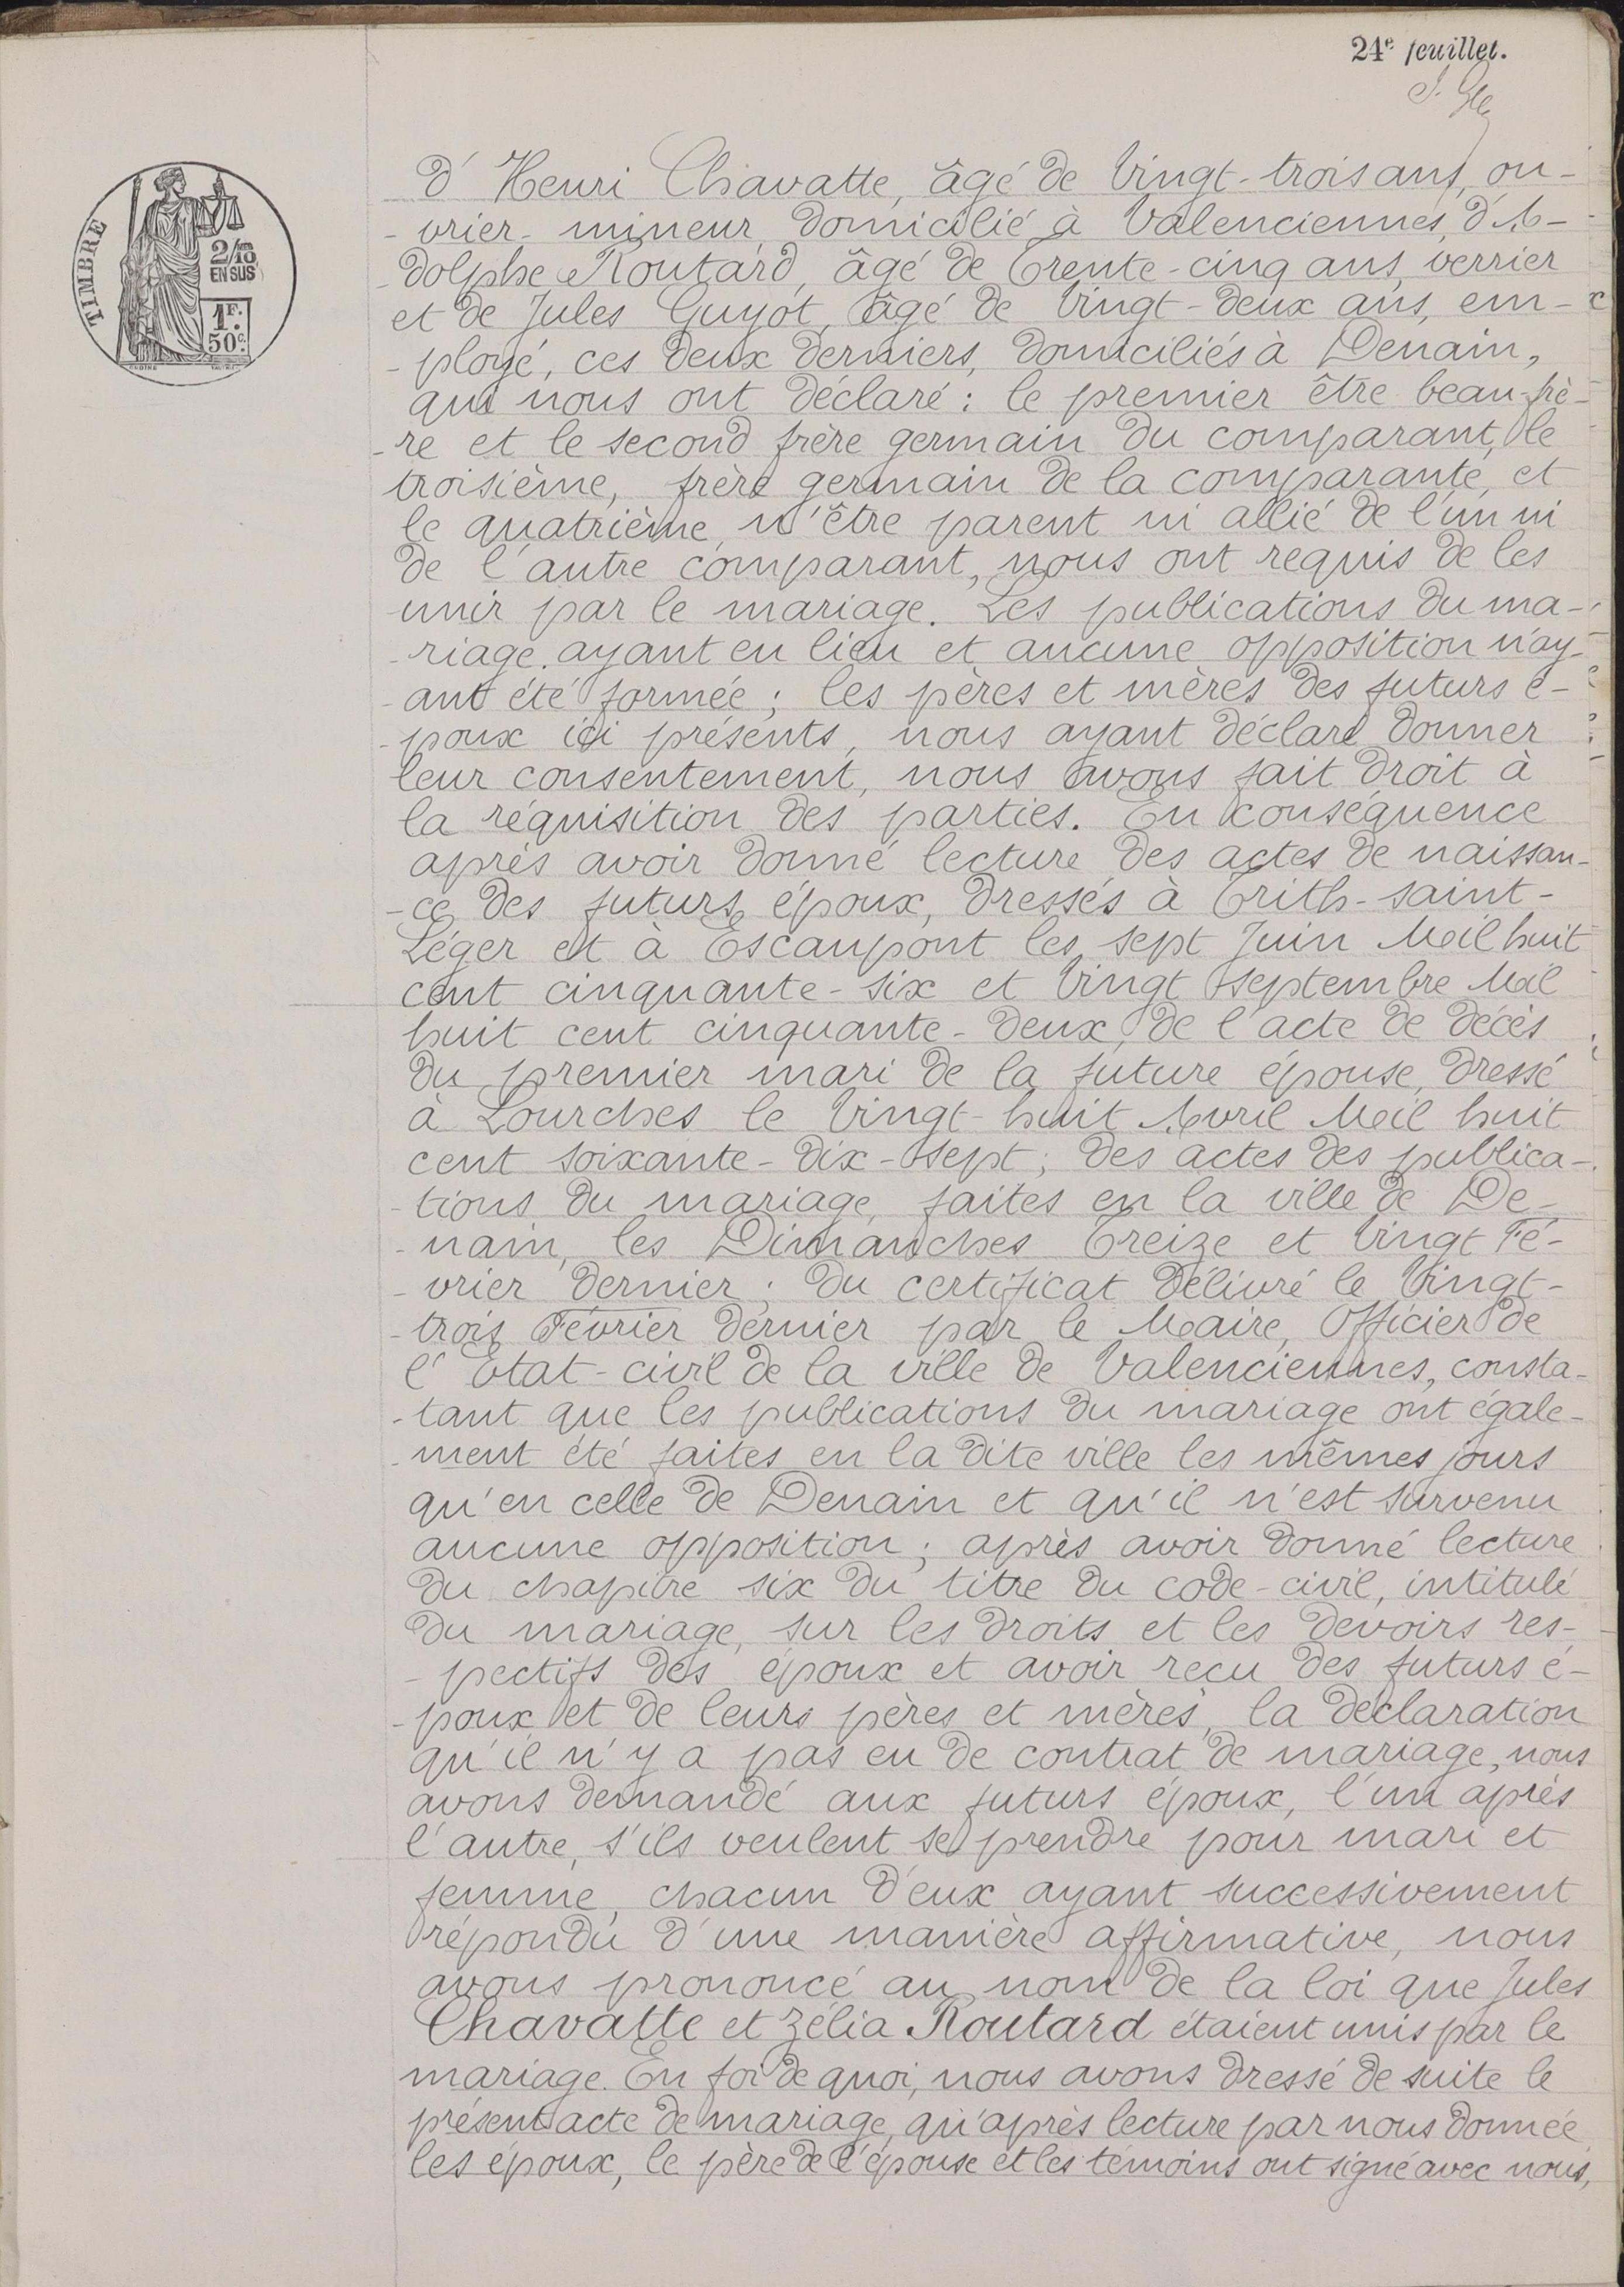 24e feuillet.
TIMBRE
2/10
EN SUS
1F.
50c.
d'Henri Chavatte, âgé de Vingt-trois ans, ou-
-vrier-mineur, domicilié à Valenciennes, d'A-
-dolphe Routard, âgé de Trente-cinq ans, verrier
et de Jules Guyot, âgé de Vingt-deux ans, em-
-ployé, ces deux derniers, domiciliés à Denain,
qui nous ont déclaré: le premier être beau-frè-
-re et le second frère germain du comparant, le
troisième, frère germain de la comparante, et
le quatrième n'être parent ni allié de l'un ni
de l'autre comparant, nous ont requis de les
unir par le mariage. Les publications du ma-
-riage ayant eu lieu et aucune opposition n'ay-
-ant été formée; les pères et mères des futurs é-
-poux ici présents, nous ayant déclaré donner
leur consentement, nous avons fait droit à
la réquisition des parties. En conséquence
après avoir donné lecture des actes de naissan-
-ce des futurs époux, dressés à Trith-saint-
Léger et à Escaupont les sept Juin Mil huit
cent cinquante-six et Vingt septembre Mil
huit cent cinquante-deux, de l'acte de décès
du premier mari de la future épouse, dressé
à Lourches le Vingt-huit Avril Mil huit
cent soixante-dix-sept; des actes des publica-
-tions du mariage, faites en la ville de De-
-nain, les Dimanches Treize et Vingt Fé-
-vrier dernier; du certificat délivré le Vingt-
-trois Février dernier par le Maire, Officier de
l'Etat-civil de la ville de Valenciennes, consta-
-tant que les publications du mariage ont égale-
-ment été faites en la dite ville les mêmes jours
qu'en celle de Denain et qu'il n'est survenu
aucune opposition; après avoir donné lecture
du chapitre six du titre du code-civil, intitulé
du mariage, sur les droits et les devoirs res-
-pectifs des époux et avoir reçu des futurs é-
-poux et de leurs pères et mères, la déclaration
qu'il n'y a pas eu de contrat de mariage, nous
avons demandé aux futurs époux, l'un après
l'autre, s'ils veulent se prendre pour mari et
femme, chacun d'eux ayant successivement
répondu d'une manière affirmative, nous
avons prononcé au nom de la loi que Jules
Chavatte et Zélia Routard étaient unis par le
mariage. En foi de quoi, nous avons dressé de suite le
présent acte de mariage, qu'après lecture par nous donnée
les époux, le père de l'épouse et les témoins ont signé avec nous,